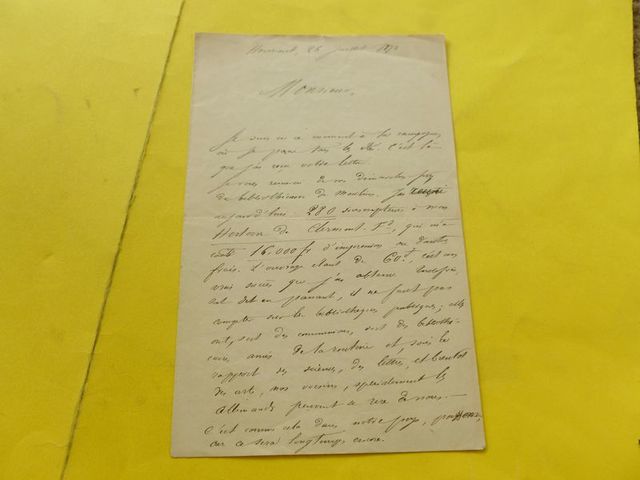 26 juillet 1872
Monsieur,
Je suis en ce moment à la campagne,
où je passe tout l'été. C'est là
que j'ai reçu votre lettre.
Je vous remercie de vos démarches près
du bibliothécaire de Moulins. J'ai
aujourd'hui 280 souscripteurs à mon
Histoire de Clermont Fd, qui m'a
coûté 16,000 fr d'impression ou d'autres
frais. L'ouvrage étant de 60f, c'est un
vrai succès que j'ai obtenu.
soit dit en passant, il ne faut pas
compter sur les bibliothèques publiques; elles
ont, soit des commissions, soit des bibliothé-
caires, amis de la routine et, sous le
rapport des sciences, des lettres, et bientôt
des arts, nos voisins, spécialement les
Allemands peuvent se rire de nous.
C'est comme cela dans notre pays,
car ce sera longtemps encore.